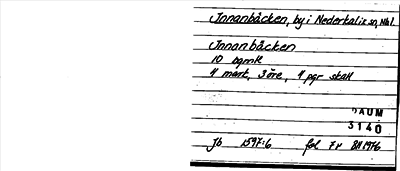 Innanbäcken, by i Nederkalix sn, Nbl.
Innanbäcken
10 bgmk
4 mark, 3 öre, 4 pgr skatt
DAUM
3140
Jb 1597:6 fol 7v BH 1976